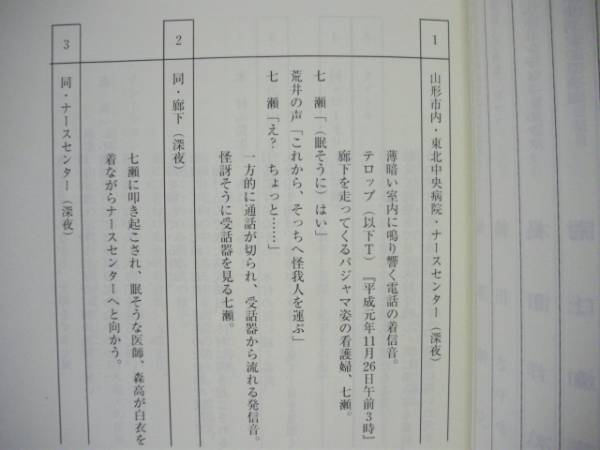 1 山形市内・東北中央病院・ナースセンター（深夜）
薄暗い室内に鳴り響く電話の着信音。
テロップ（以下T）『平成元年11月26日午前3時』
廊下を走ってくるパジャマ姿の看護婦、七瀬。
七　瀬「（眠そうに）はい」
荒井の声「これから、そっちへ怪我人を運ぶ」
七　瀬「え？　ちょっと……」
一方的に通話が切られ、受話器から流れる発信音。
怪訝そうに受話器を見る七瀬。
2 同・廊下（深夜）
七瀬に叩き起こされ、眠そうな医師、森高が白衣を
着ながらナースセンターへと向かう。
3 同・ナースセンター（深夜）